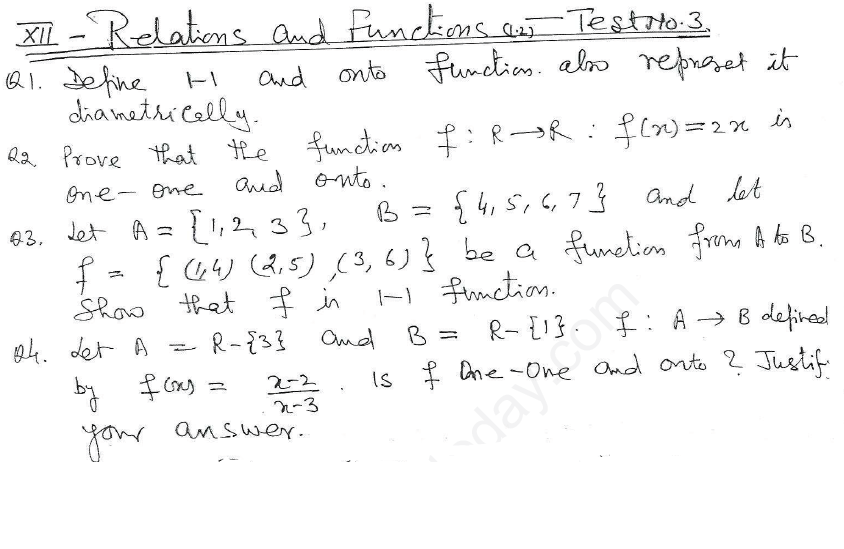 XII - Relations and Functions (1.2) - Test No. 3.
Q1. Define 1-1 and onto function. also represet it
diametrically.
Q2. Prove that the function f : R → R : f(x) = 2x is
one-one and onto.
Q3. Let A = {1, 2, 3}, B = {4, 5, 6, 7} and let
f = {(1,4) (2,5), (3, 6)} be a function from A to B.
Show that f is 1-1 function.
Q4. Let A = R-{3} and B = R-{1}. f : A → B defined
by f(x) = x-2/x-3. Is f One-One and onto? Justify
your answer.
today.com